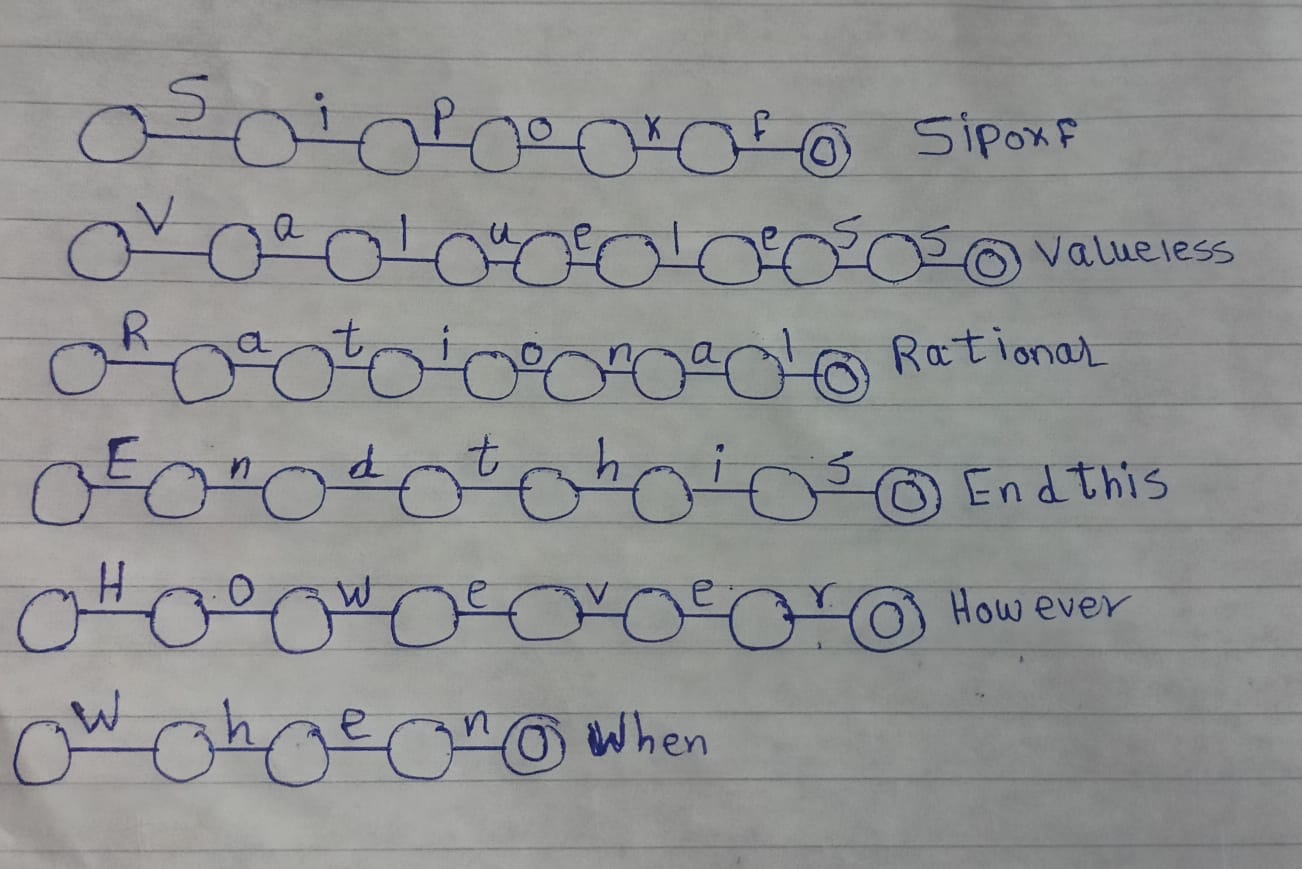 S i p o x f Sipoxf
V a l u e l e s s Valueless
R a t i o n a l Rational
E n d t h i s End this
H o w e v e r However
W h e n When